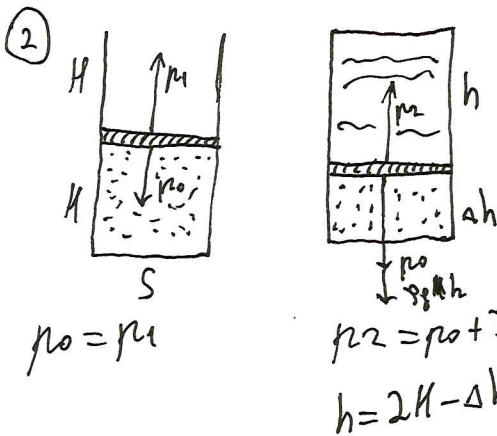 2
H
p1
H
p0
S
p0 = p1
p2
h
Δh
p0
ρgh
p2 = p0 +
h = 2H - Δh